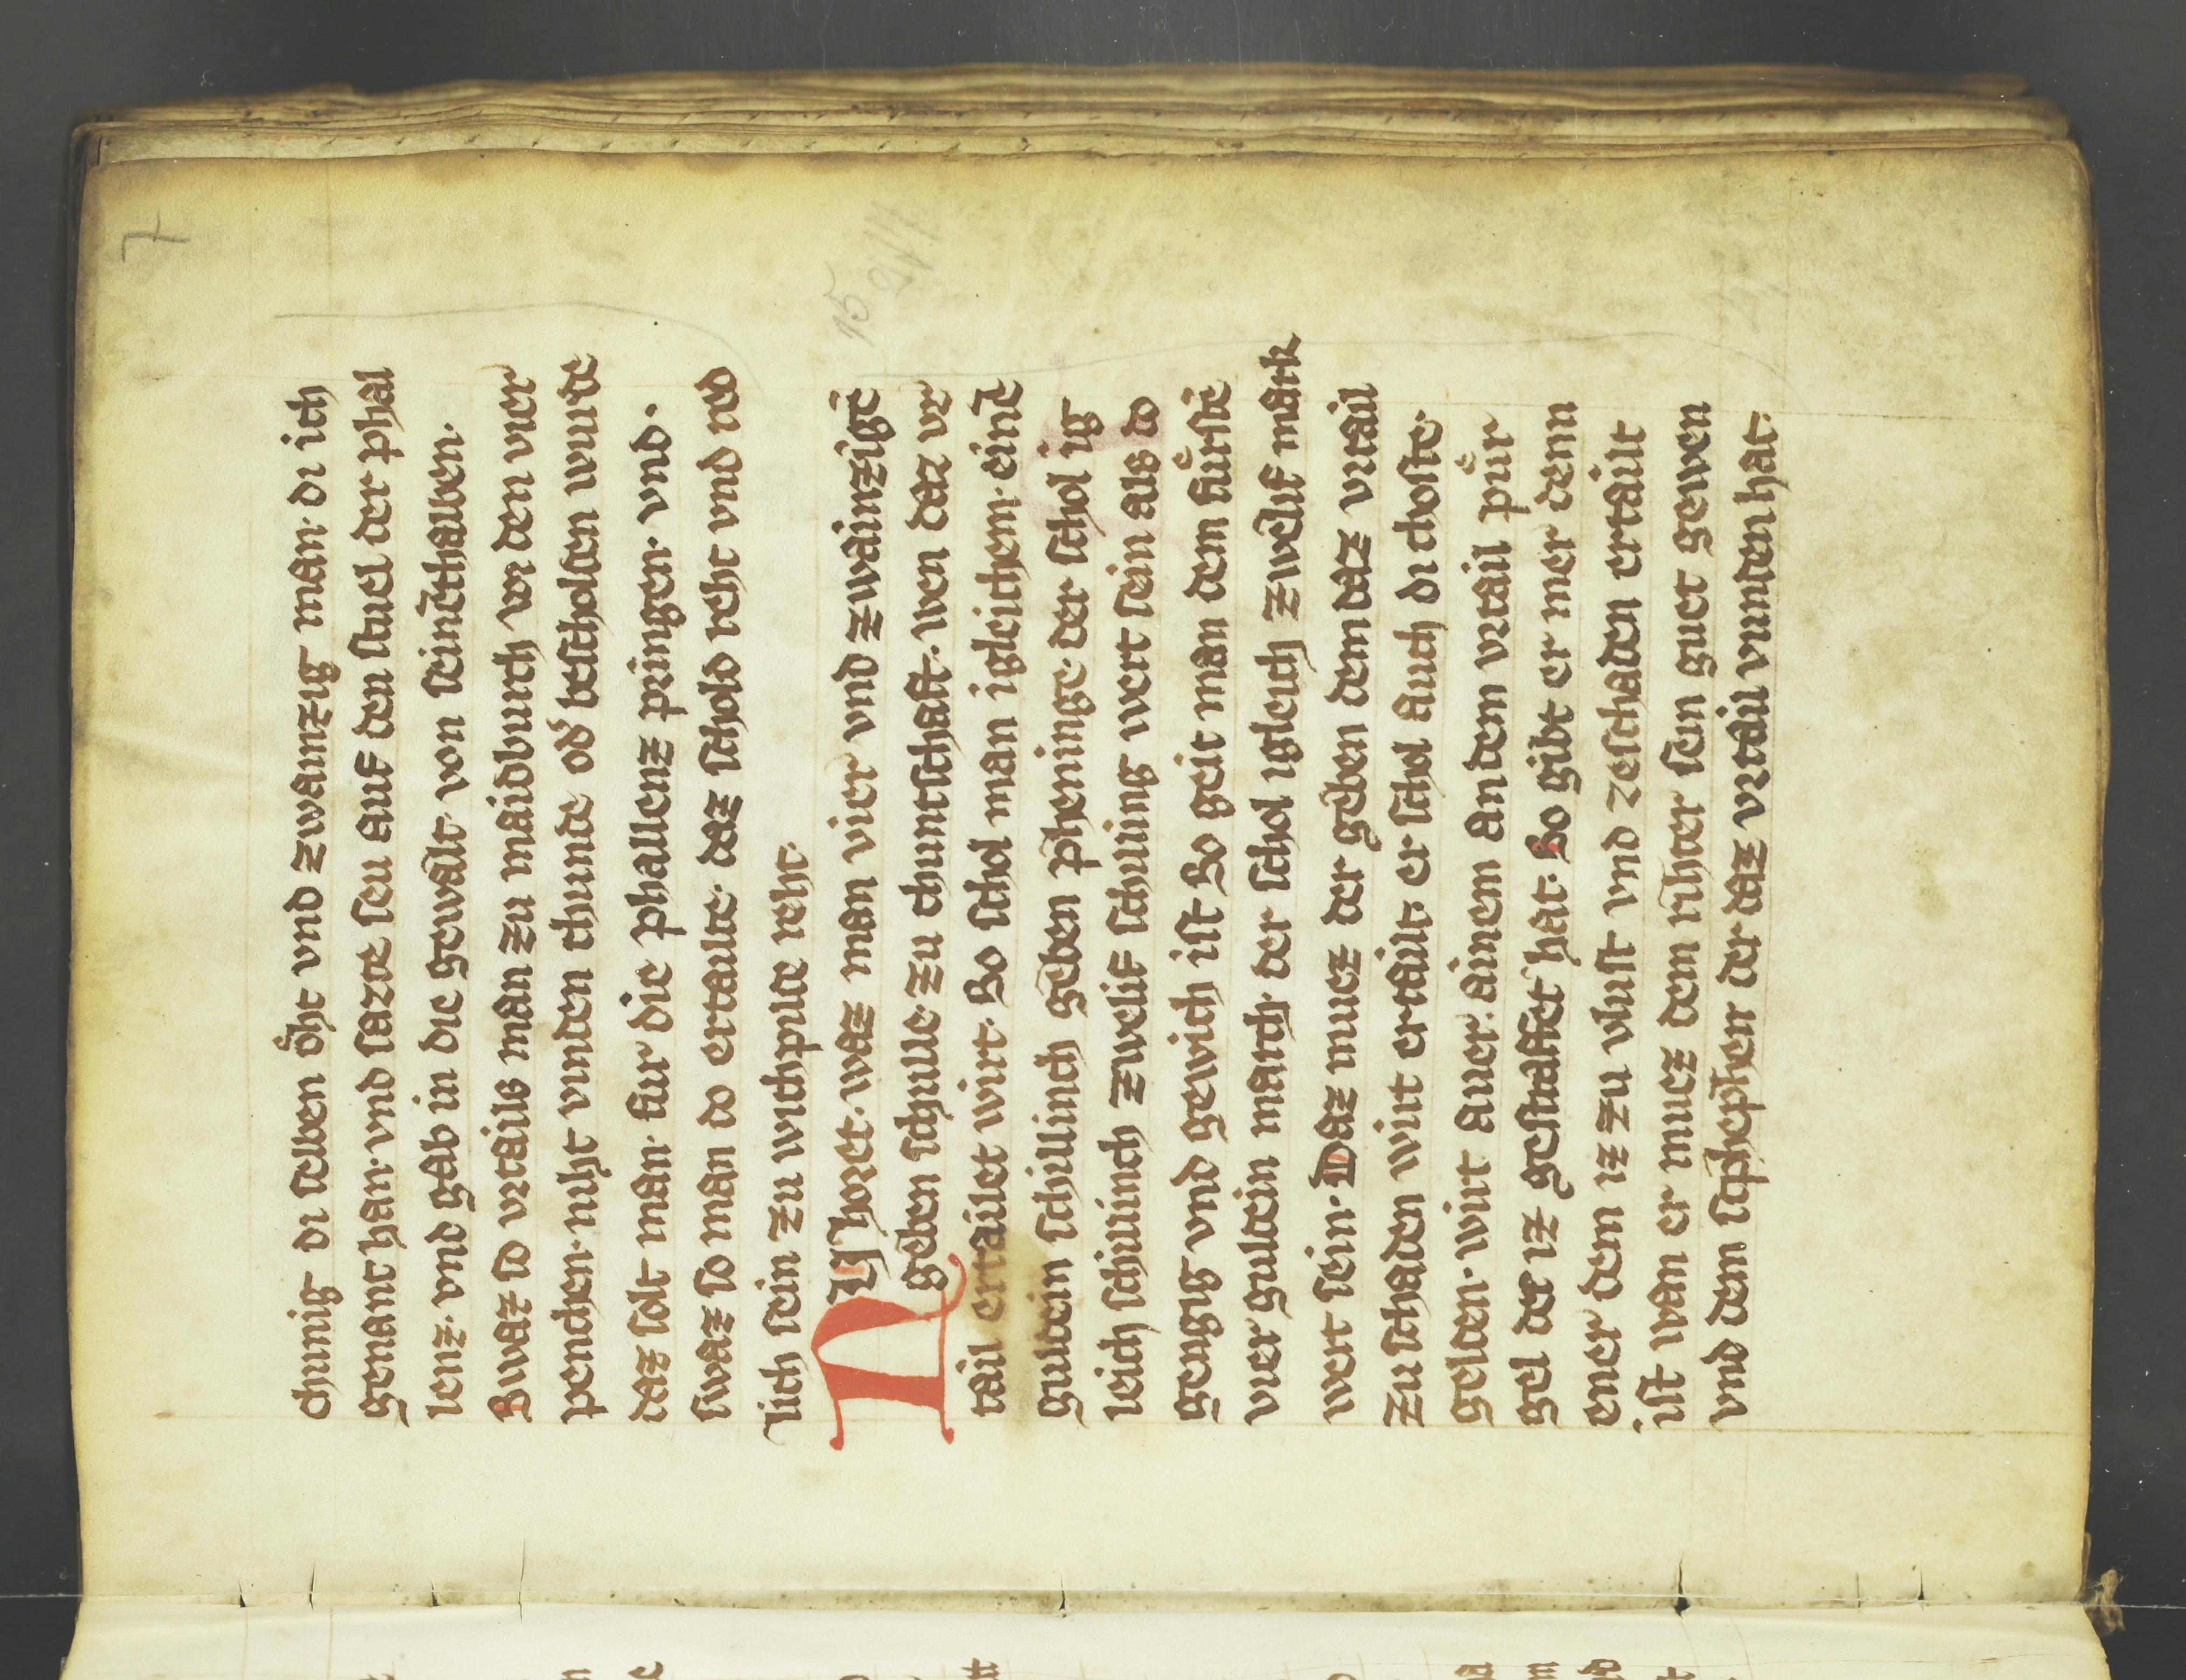 7
chunig di selben oͤht vnd zwainzig man· di ich
genant han· vnd sazte seu auf den stuel der phal
lenz· vnd gab in die gewalt· von seinēthalben·
Swaz so vrtails man zu maidburch vor den vier
penchen· niht vinden chunde od' bescholden wurde
daz solt man· fur die phallenz pringen· vnd·
swaz so man do ertailte· daz schold reht vnd red
lich sein zu wichpilde reht·
NV horet· waz man vier vnd zwainzigē
geben schulle· zu chuntschaft· wen daz vr
tail ertailet wirt· So schol man igleichem· einē
guldein schillinch geben pheninge· der schol ig
leich schillinch zwelif schilling wert sein als do
gengig vnd gewich ist So geit man dem fuͤrstē
vier guldein march· der schol igleich zwelif mark
wert sein· Daz muez der geben dem daz vrtail
zu schaden wirt ertailt· er schol auch di choste·
gelden· wirt auer· ainem an dem vrtail puͤr
gel der iz gestraffet hat· So gibt er mer denn
ener dem iz zu vlust vnd ze schaden ertailt
ist wan er muez dem rihter sein guet gewen
vnd dem schephen der daz vrtail vunden hat·